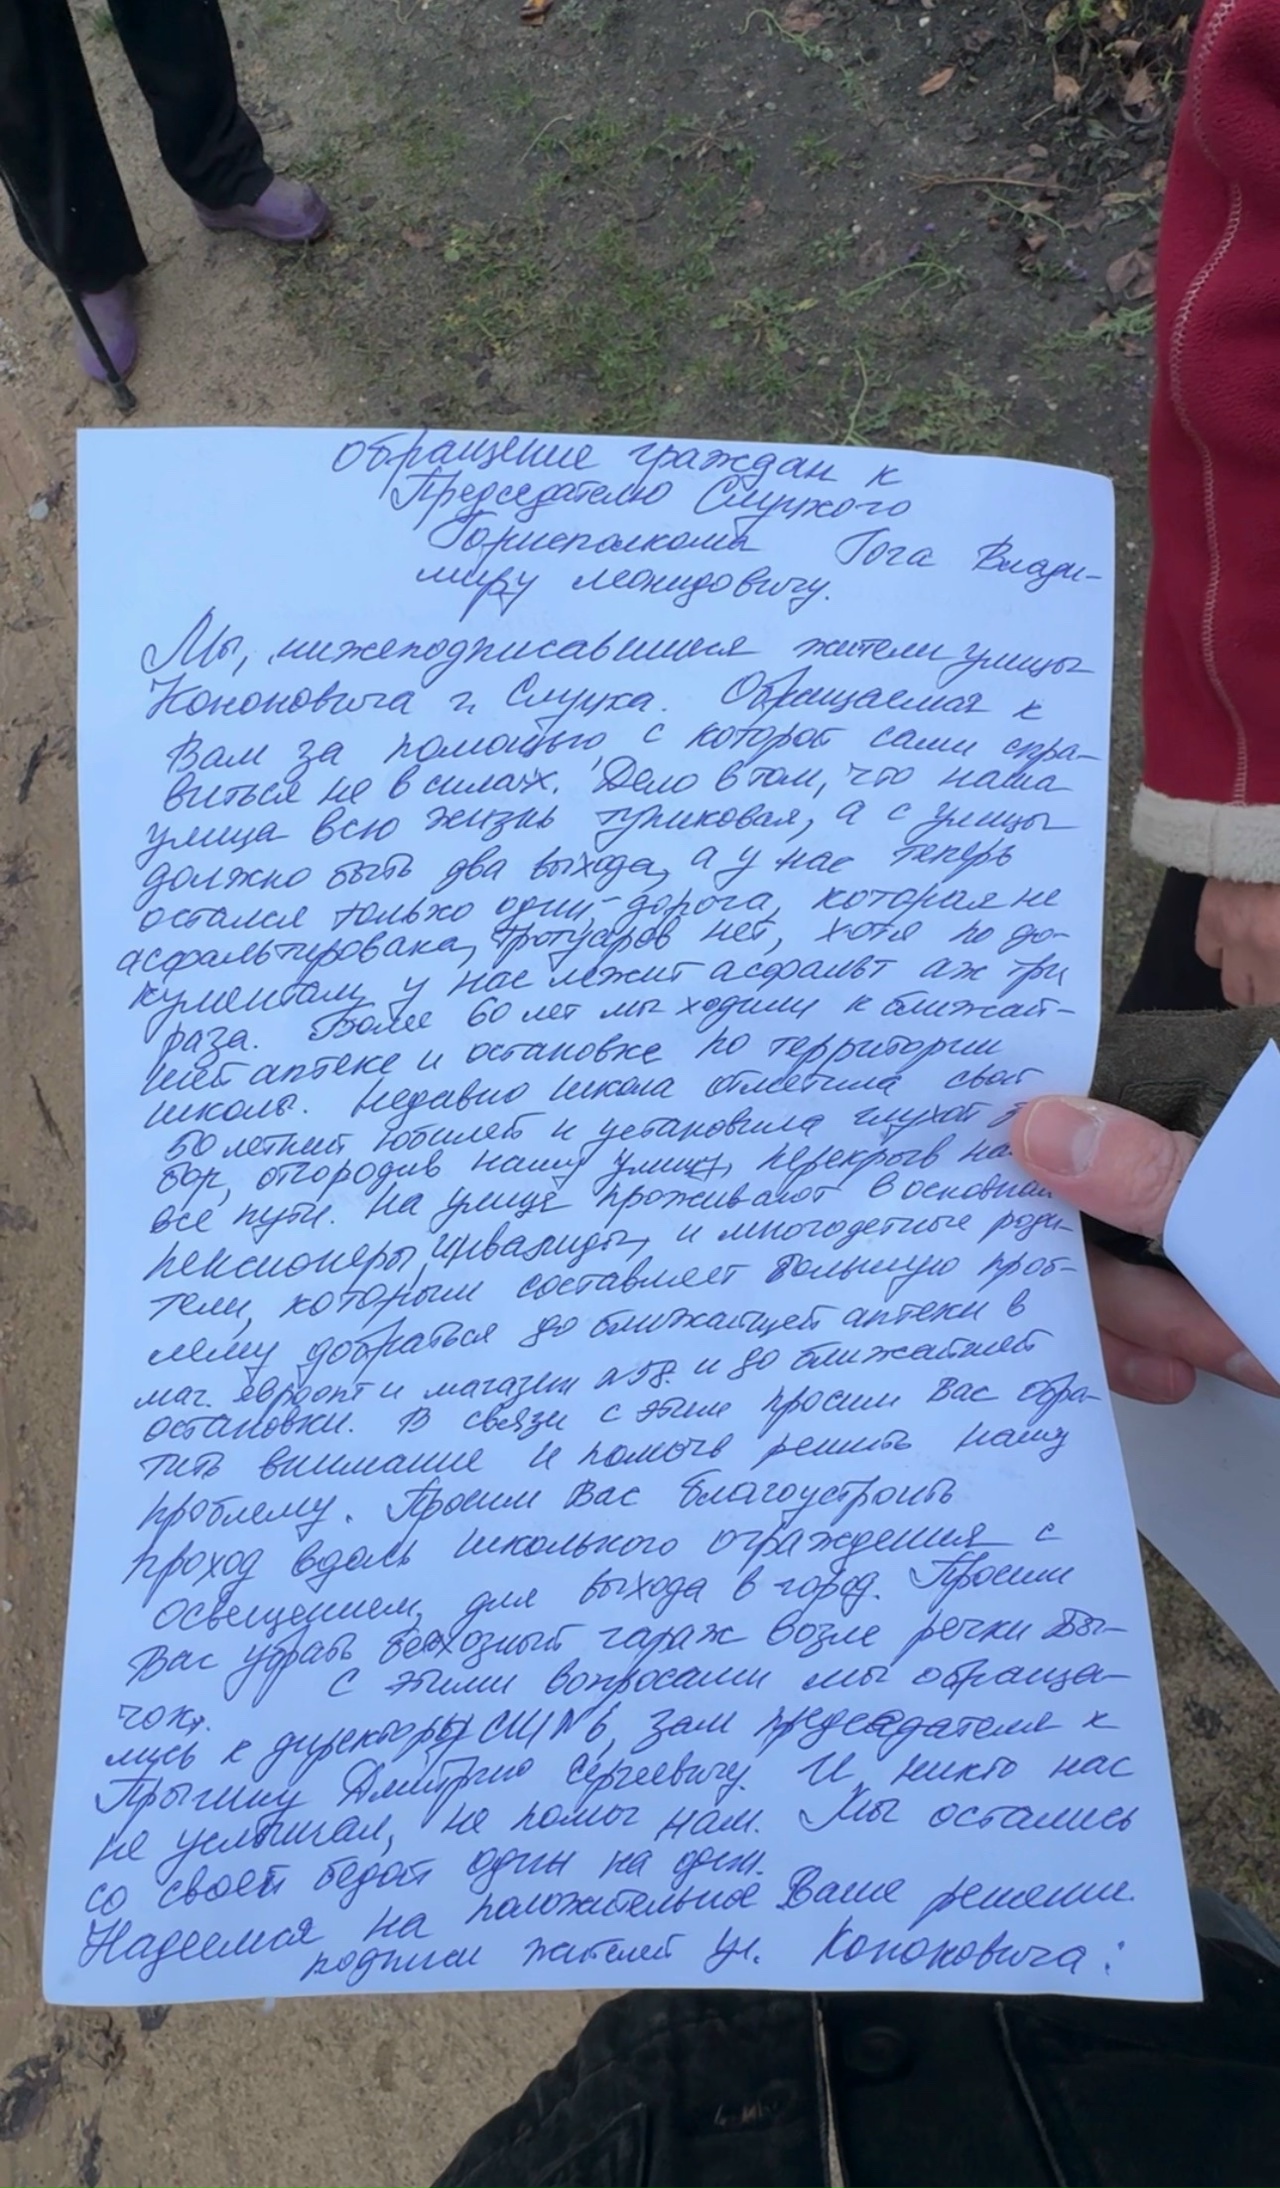 Обращение граждан к
Председателю Слуцкого
Горисполкома Гога Влади-
миру Леонидовичу.
Мы, нижеподписавшиеся жители улицы
Кононовича г. Слуцка. Обращаемся к
Вам за помощью, с которой сами спра-
виться не в силах. Дело в том, что наша
улица всю жизнь тупиковая, а с улицы
должно быть два выхода, а у нас теперь
остался только один - дорога, которая не
асфальтирована, тротуаров нет, хотя по до-
кументам у нас лежит асфальт аж три
раза. Более 60 лет мы ходили к ближай-
шей аптеке и остановке по территории
школы. Недавно школа отметила свой
50 летний юбилей и установила глухой
бор, отгородив нашу улицу, перекрыв
все пути. На улице проживают в основном
пенсионеры, инвалиды, и многодетные роди-
тели, которым составляет большую проб-
лему добраться до ближайшей аптеки в
маг. Евроопт и магазин №58 и до ближайшей
остановки. В связи с этим просим Вас обра-
тить внимание и помочь решить нашу
проблему. Просим Вас благоустроить
проход вдоль школьного ограждения с
освещением, для выхода в город. Просим
Вас убрать бесхозный гараж возле речки Бы-
чок. С этими вопросами мы обраща-
лись к директору СШ№6, зам председателя к
Дмитрию Сергеевичу. И никто нас
не услышал, не помог нам. Мы остались
со своей бедой один на один.
Надеемся на положительное Ваше решение.
подписи жителей ул. Кононовича: